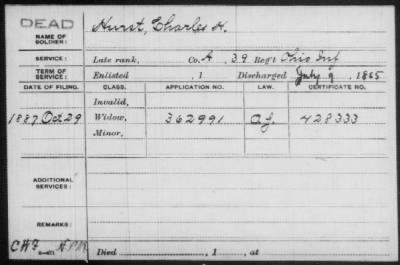 DEAD
NAME OF SOLDIER: Hurst, Charles H.
SERVICE: Late rank, Co. A, 39 Reg't Ohio Inf
TERM OF SERVICE: Enlisted , 1 Discharged July 9, 1865
DATE OF FILING. CLASS. APPLICATION NO. LAW. CERTIFICATE NO.
Invalid,
1887 Oct 29 Widow, 362991 428333
Minor,
ADDITIONAL SERVICES:
REMARKS:
Died , 1 , at